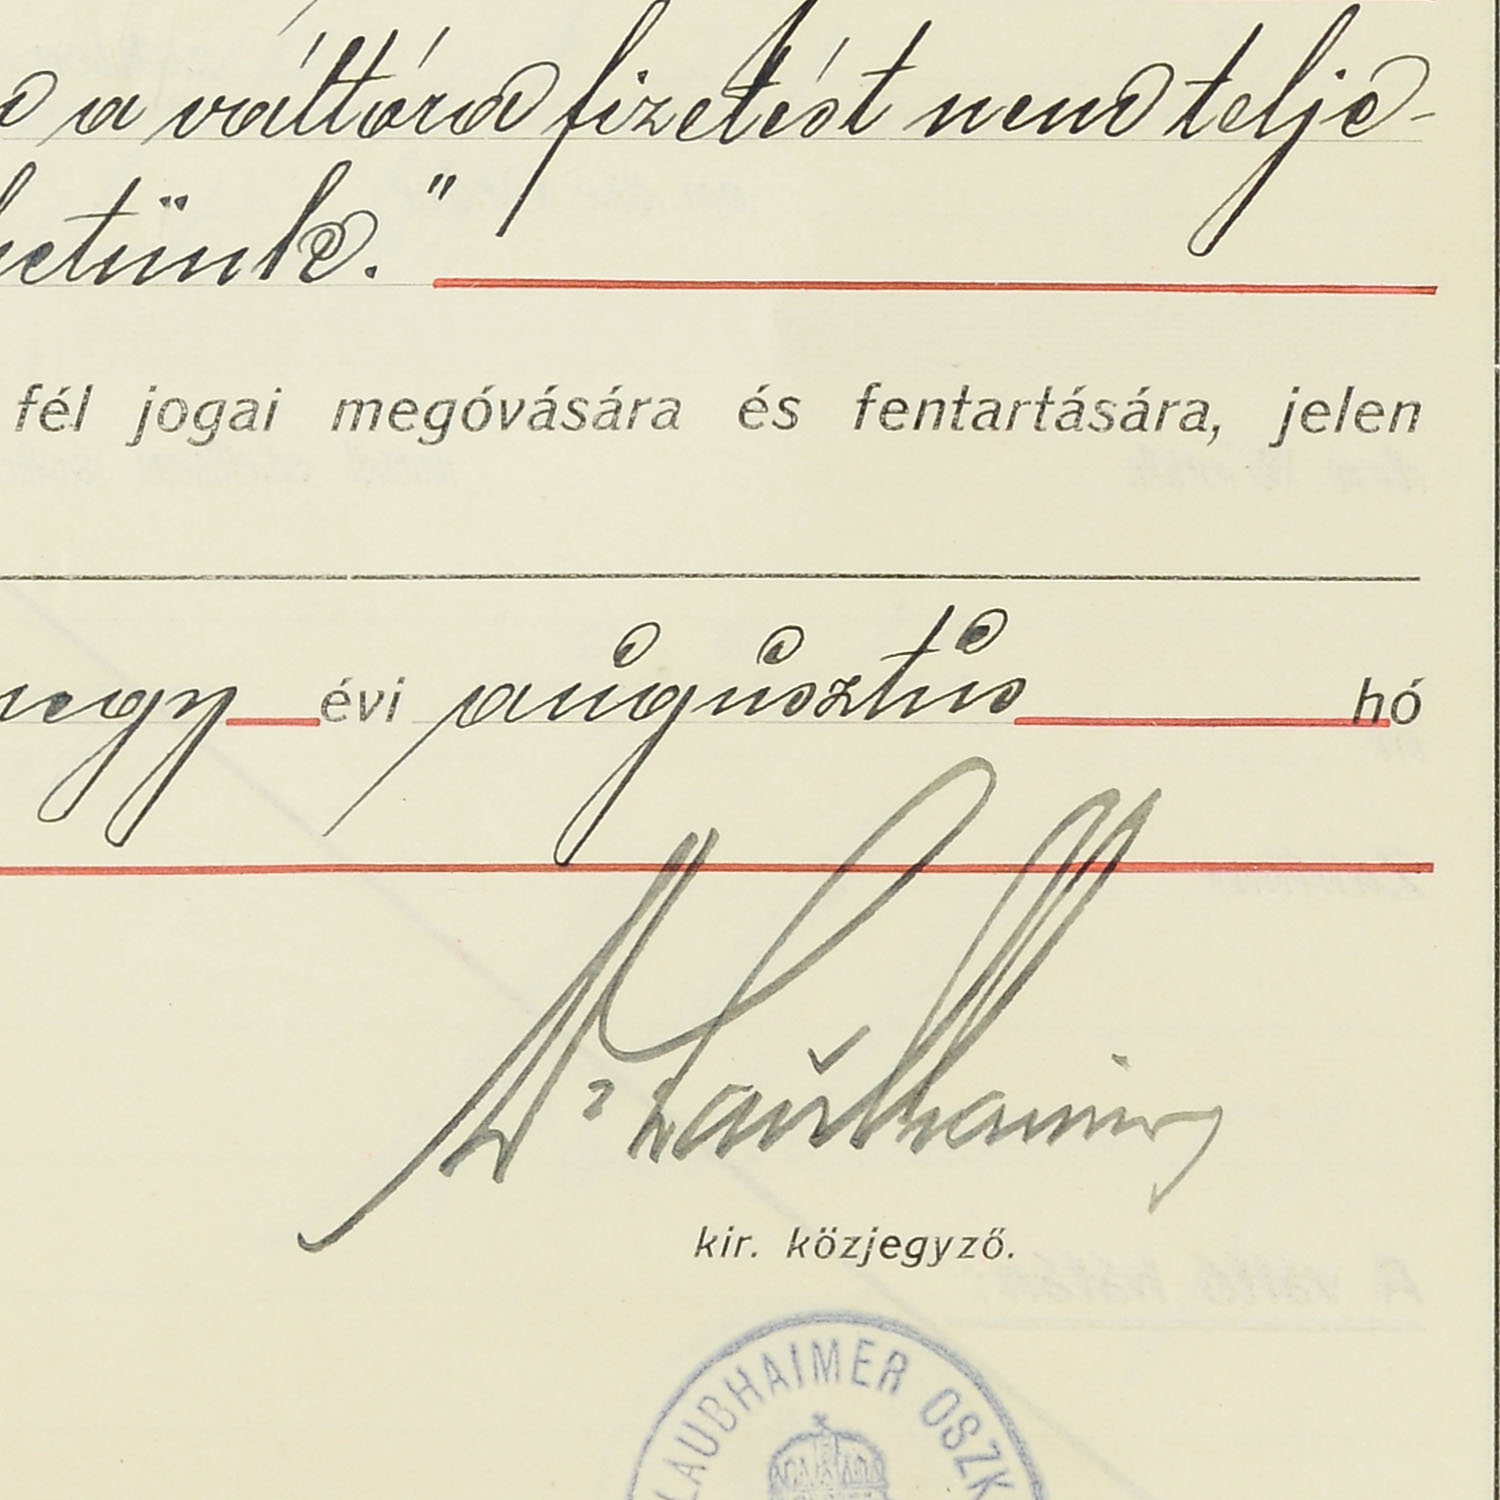 a váltóra fizetést nem telje-
hetünk."
fél jogai megóvására és fentartására, jelen
negy évi augusztus hó
Dr Laubhaimer
kir. közjegyző.
LAUBHAIMER OSZK